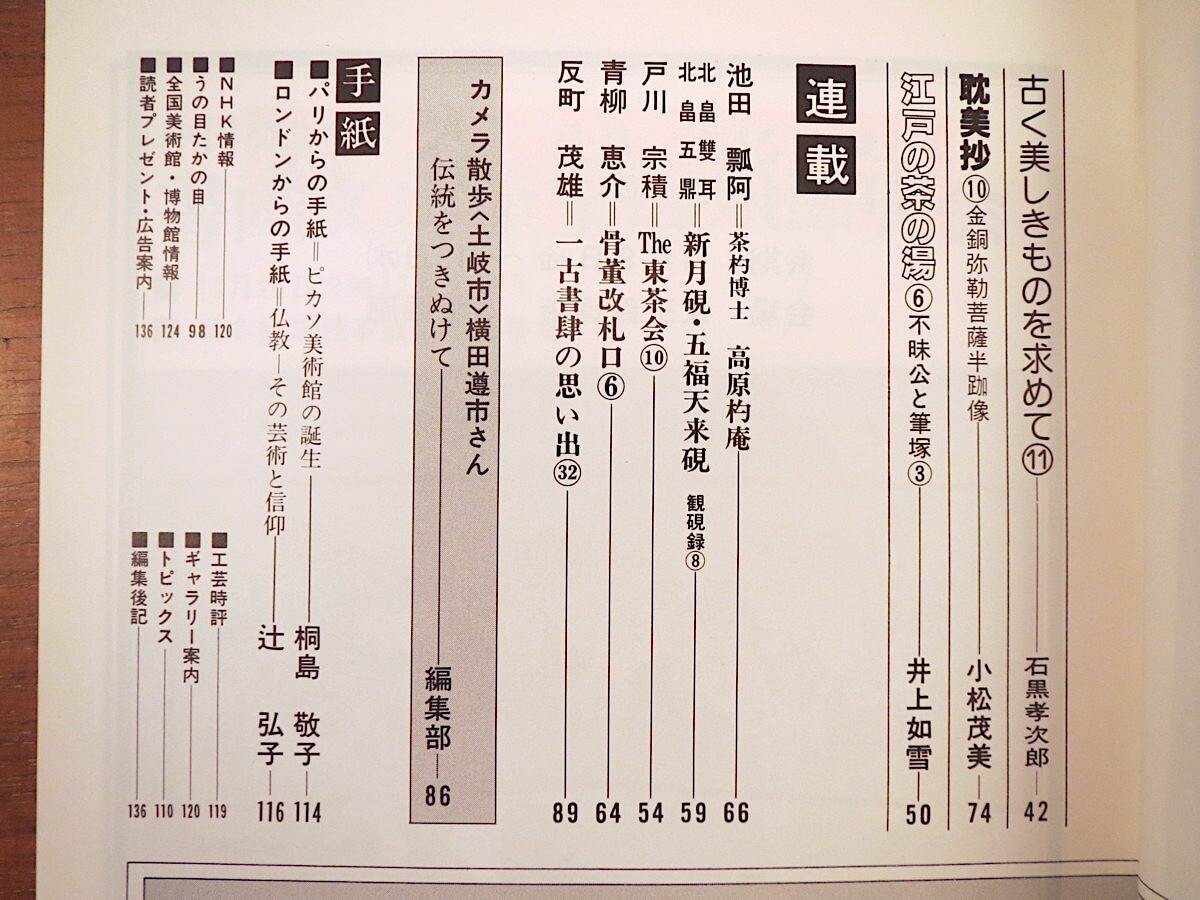 古く美しきものを求めて⑪ 石黒孝次郎 42
耽美抄⑩金銅弥勒菩薩半跏像 小松茂美 74
江戸の茶の湯⑥不昧公と筆塚③ 井上如雪 50
連載
池田 瓢阿＝茶杓博士 高原杓庵 66
北畠雙耳
北畠五鼎＝新月硯・五福天来硯 観硯録⑧ 59
戸川 宗積＝The東茶会⑩ 54
青柳 恵介＝骨董改札口⑥ 64
反町 茂雄＝一古書肆の思い出㉜ 89
カメラ散歩〈土岐市〉横田遵市さん
伝統をつきぬけて 編集部 86
手紙
■パリからの手紙＝ピカソ美術館の誕生 桐島 敬子 114
■ロンドンからの手紙＝仏教―その芸術と信仰 辻 弘子 116
■NHK情報 120
■うの目たかの目 98
■全国美術館・博物館情報 124
■読者プレゼント・広告案内 136
■工芸時評 119
■ギャラリー案内 120
■トピックス 110
■編集後記 136